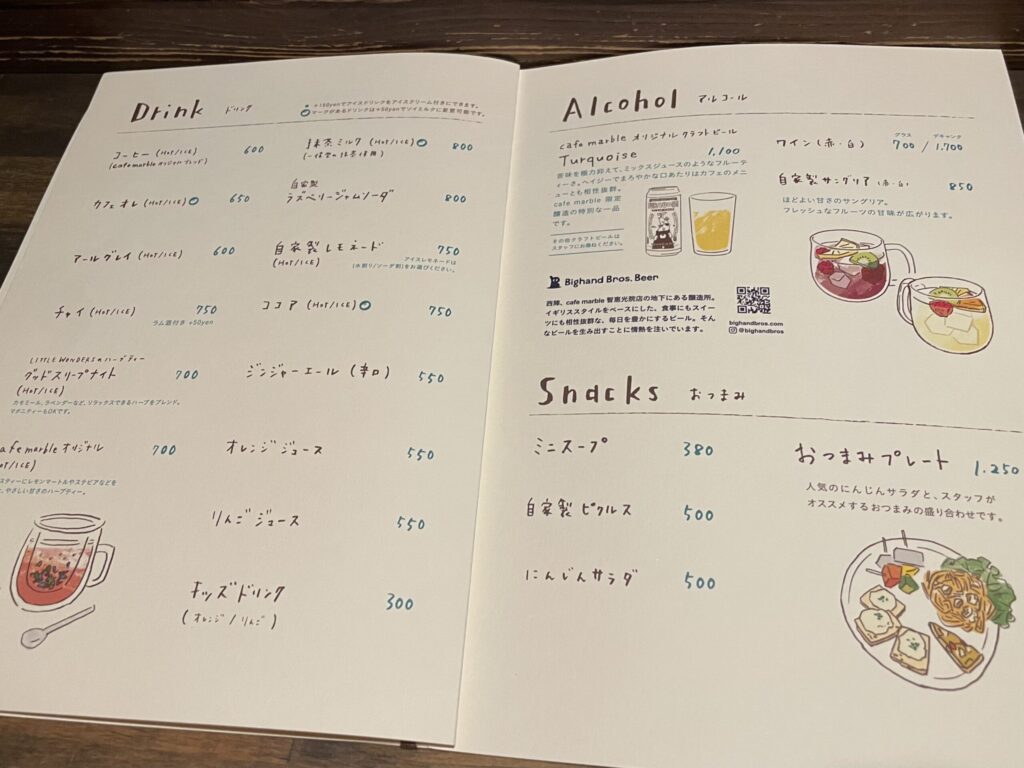 Drink ドリンク
+150yenでアイスドリンクをアイスクリーム付きにできます。
マークがあるドリンクは+50yenでソイミルクに変更可能です。
コーヒー (HOT/ICE) 600
(Cafe marble オリジナルブレンド)
カフェオレ (HOT/ICE) 650
アールグレイ (HOT/ICE) 600
チャイ (HOT/ICE) 750
ラム酒付き +50yen
LITTLE WONDERSのハーブティー
グッドスリープナイト 700
(HOT/ICE)
カモミール、ラベンダーなど、リラックスできるハーブをブレンド。
マタニティーもOKです。
cafe marble オリジナル 700
(HOT/ICE)
スティーにレモンマートルやステビアなどを
、やさしい甘さのハーブティー。
抹茶ミルク (HOT/ICE) 800
(一保堂の抹茶使用)
自家製
ラズベリージャムソーダ 800
自家製レモネード 750
(HOT/ICE)
アイスレモネードは
(水割り/ソーダ割)をお選びください。
ココア (HOT/ICE) 750
ジンジャーエール (辛口) 550
オレンジジュース 550
りんごジュース 550
キッズドリンク 300
(オレンジ/りんご)
Alcohol アルコール
cafe marble オリジナルクラフトビール
Turquoise 1,100
苦味を極力抑えて、ミックスジュースのようなフルーテ
ィーさ。ヘイジーでまろやかな口あたりはカフェのメニ
ューとも相性抜群。
cafe marble 限定
醸造の特別な一品
です。
その他クラフトビールは
スタッフにお尋ねください。
Bighand Bros. Beer
西陣、cafe marble 智恵光院店の地下にある醸造所。
イギリススタイルをベースにした、食事にもスイー
ツにも相性抜群な、毎日を豊かにするビール。そん
なビールを生み出すことに情熱を注いでいます。
bighandbros.com
@bighandbros
グラス デキャンタ
ワイン (赤・白) 700 / 1,700
自家製サングリア (赤・白) 850
ほどよい甘さのサングリア。
フレッシュなフルーツの甘味が広がります。
Snacks おつまみ
ミニスープ 380
自家製ピクルス 500
にんじんサラダ 500
おつまみプレート 1,250
人気のにんじんサラダと、スタッフが
オススメするおつまみの盛り合わせです。